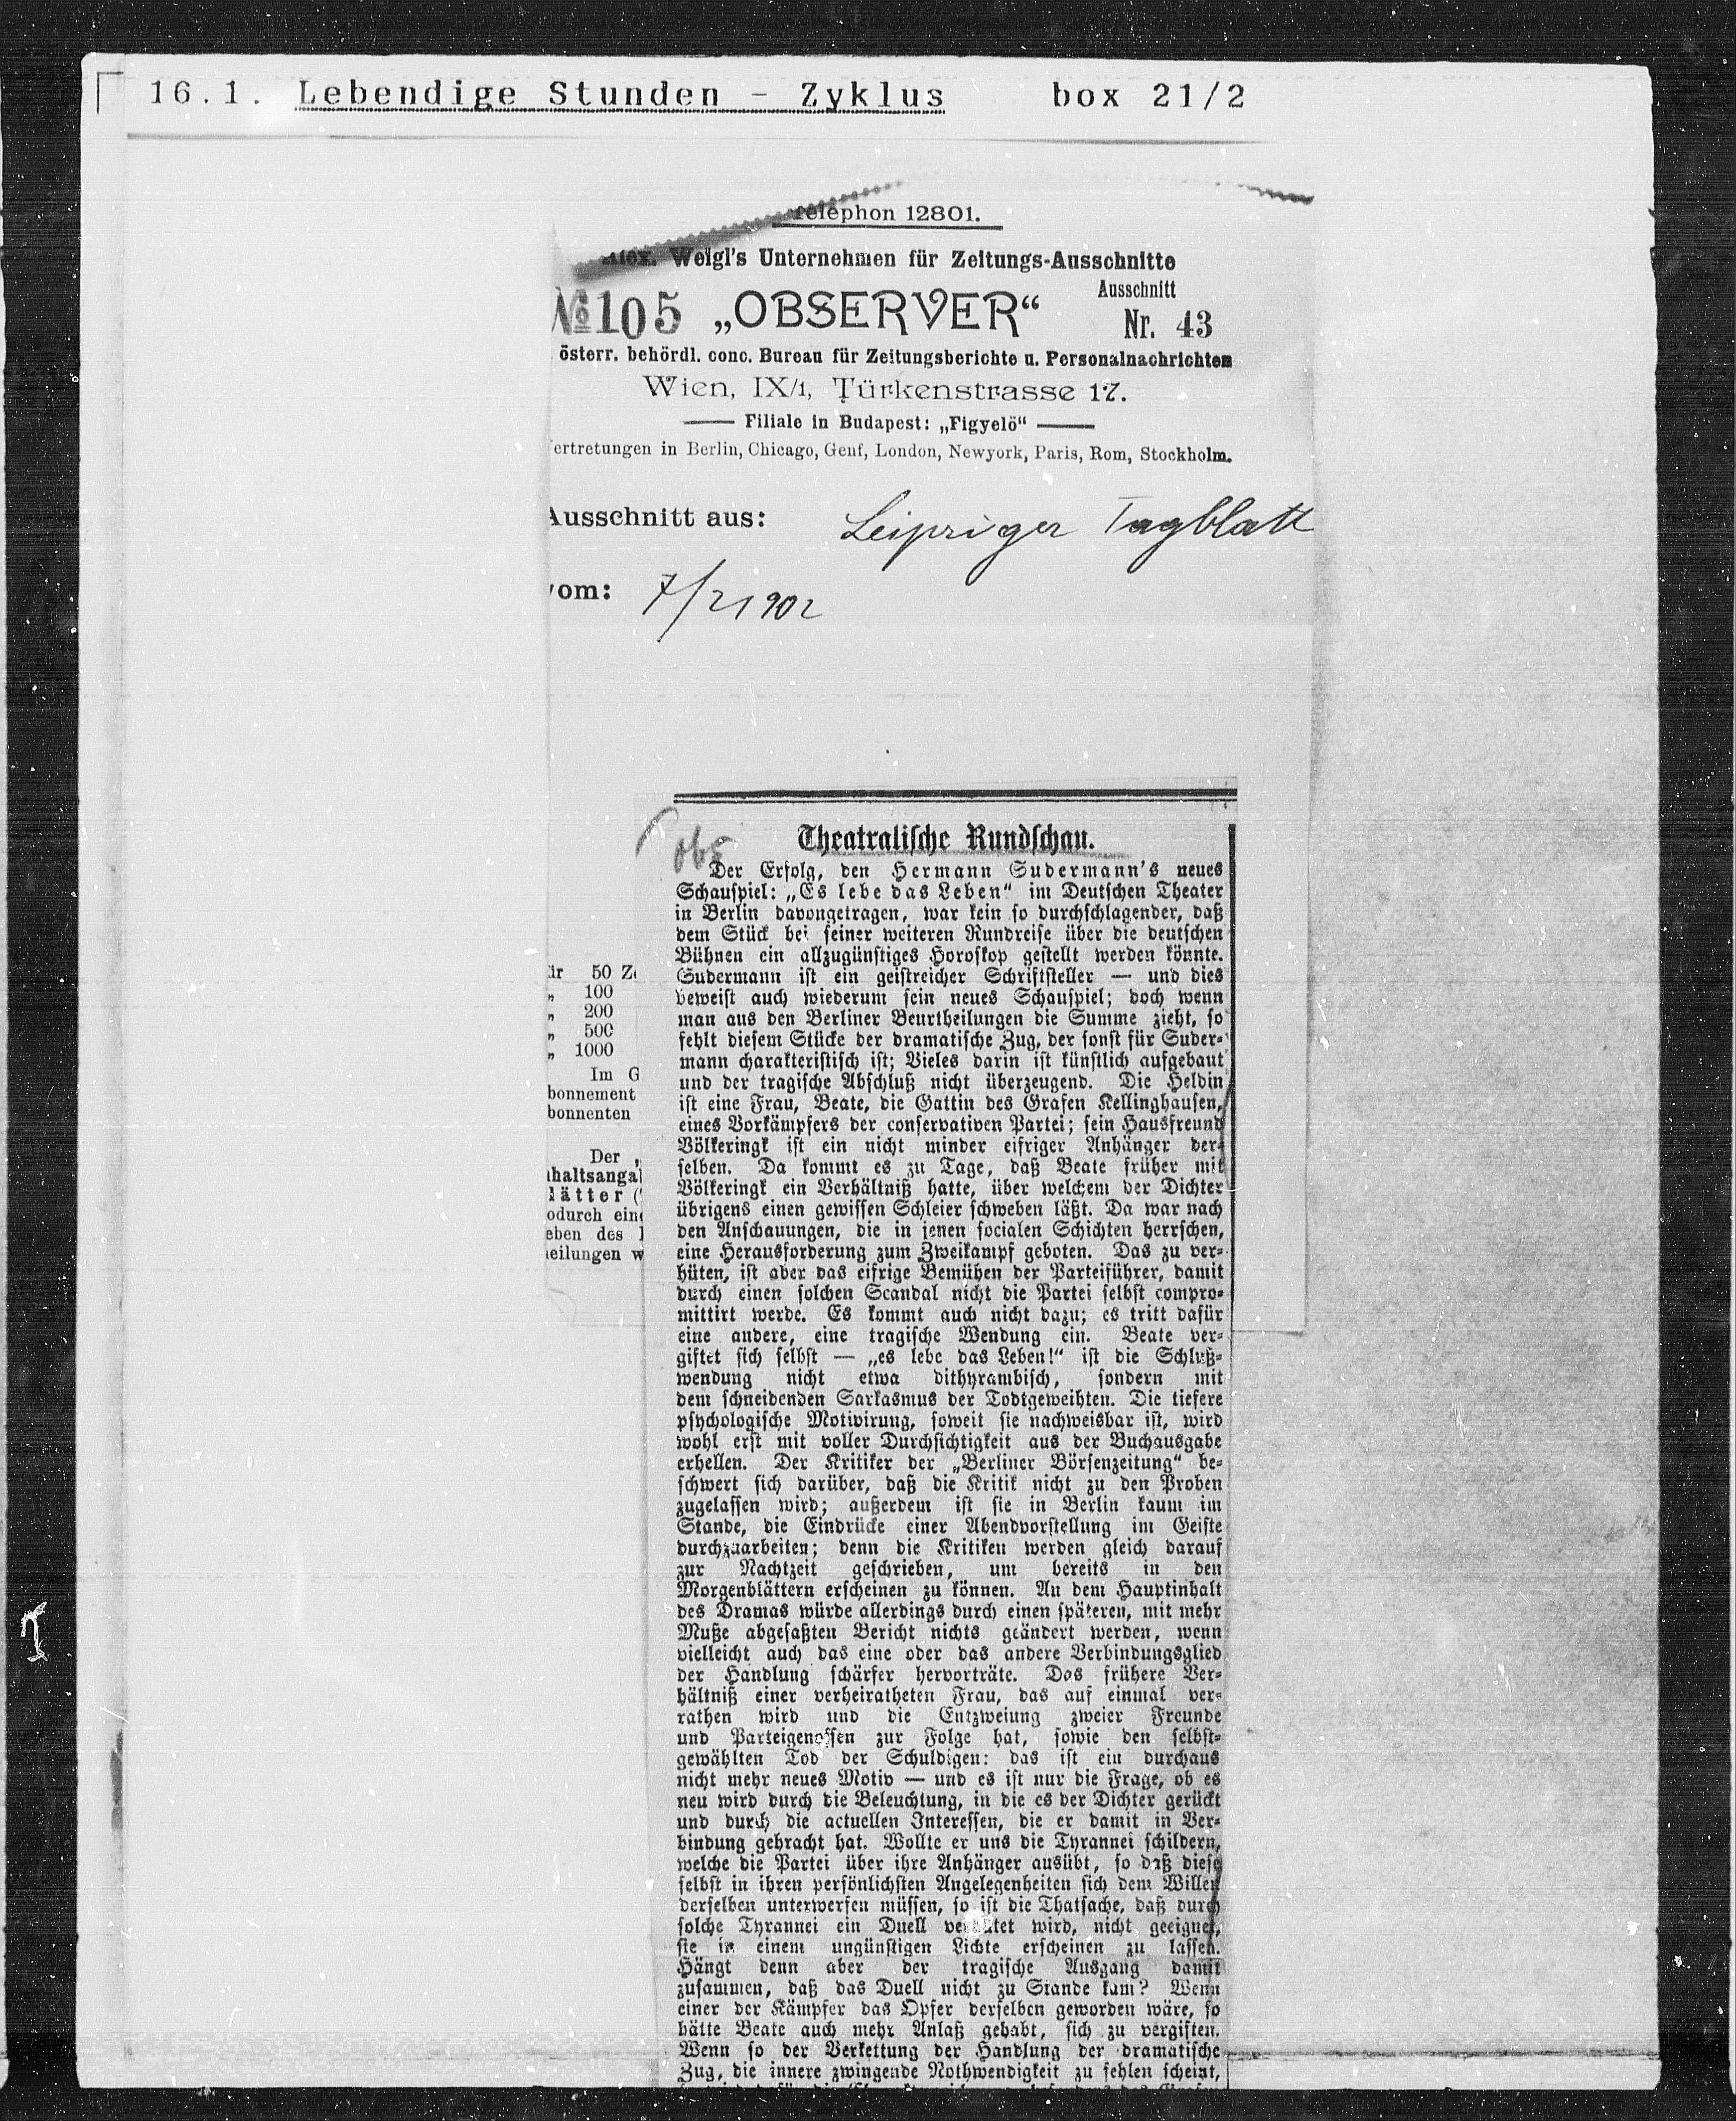 16.1. Lebendige Stunden - Zyklus box 21/2
Telephon 12801.
Alex. Weigl's Unternehmen für Zeitungs-Ausschnitte
№ 105 „OBSERVER“ Ausschnitt
Nr. 43
österr. behördl. conc. Bureau für Zeitungsberichte u. Personalnachrichten
Wien, IX/1, Türkenstrasse 17.
Filiale in Budapest: „Figyelö“
ertretungen in Berlin, Chicago, Genf, London, Newyork, Paris, Rom, Stockholm.
Ausschnitt aus: Leipziger Tagblatt
vom: 7/2 1902
ür 50 Z
„ 100
„ 200
„ 500
„ 1000
Im G
bonnement
bonnenten
Der „
haltsanga
lätter (
odurch ein
eben des
eilungen w
obs
Theatralische Rundschau.
Der Erfolg, den Hermann Sudermann's neues
Schauspiel: „Es lebe das Leben“ im Deutschen Theater
in Berlin davongetragen, war kein so durchschlagender, daß
dem Stück bei seiner weiteren Rundreise über die deutschen
Bühnen ein allzugünstiges Horoskop gestellt werden könnte.
Sudermann ist ein geistreicher Schriftsteller — und dies
beweist auch wiederum sein neues Schauspiel; doch wenn
man aus den Berliner Beurtheilungen die Summe zieht, so
fehlt diesem Stücke der dramatische Zug, der sonst für Suder-
mann charakteristisch ist; Vieles darin ist künstlich aufgebaut
und der tragische Abschluß nicht überzeugend. Die Heldin
ist eine Frau, Beate, die Gattin des Grafen Kellinghausen,
eines Vorkämpfers der conservativen Partei; sein Hausfreund
Völkeringk ist ein nicht minder eifriger Anhänger der-
selben. Da kommt es zu Tage, daß Beate früher mit
Völkeringk ein Verhältniß hatte, über welchem der Dichter
übrigens einen gewissen Schleier schweben läßt. Da war nach
den Anschauungen, die in jenen socialen Schichten herrschen,
eine Herausforderung zum Zweikampf geboten. Das zu ver-
hüten, ist aber das eifrige Bemühen der Parteiführer, damit
durch einen solchen Scandal nicht die Partei selbst compro-
mittirt werde. Es kommt auch nicht dazu; es tritt dafür
eine andere, eine tragische Wendung ein. Beate ver-
giftet sich selbst — „es lebe das Leben!“ ist die Schluß-
wendung nicht etwa dithyrambisch, sondern mit
dem schneidenden Sarkasmus der Todtgeweihten. Die tiefere
psychologische Motivirung, soweit sie nachweisbar ist, wird
wohl erst mit voller Durchsichtigkeit aus der Buchausgabe
erhellen. Der Kritiker der „Berliner Börsenzeitung“ be-
schwert sich darüber, daß die Kritik nicht zu den Proben
zugelassen wird; außerdem ist sie in Berlin kaum im
Stande, die Eindrücke einer Abendvorstellung im Geiste
durchzuarbeiten; denn die Kritiken werden gleich darauf
zur Nachtzeit geschrieben, um bereits in den
Morgenblättern erscheinen zu können. An dem Hauptinhalt
des Dramas würde allerdings durch einen späteren, mit mehr
Muße abgefaßten Bericht nichts geändert werden, wenn
vielleicht auch das eine oder das andere Verbindungsglied
der Handlung schärfer hervorträte. Das frühere Ver-
hältniß einer verheiratheten Frau, das auf einmal ver-
rathen wird und die Entzweiung zweier Freunde
und Parteigenossen zur Folge hat, sowie den selbst-
gewählten Tod der Schuldigen: das ist ein durchaus
nicht mehr neues Motiv — und es ist nur die Frage, ob es
neu wird durch die Beleuchtung, in die es der Dichter gerückt
und durch die actuellen Interessen, die er damit in Ver-
bindung gebracht hat. Wollte er uns die Tyrannei schildern,
welche die Partei über ihre Anhänger ausübt, so daß diese
selbst in ihren persönlichsten Angelegenheiten sich dem Willen
derselben unterwerfen müssen, so ist die Thatsache, daß durch
solche Tyrannei ein Duell verhütet wird, nicht geeignet,
sie in einem ungünstigen Lichte erscheinen zu lassen.
Hängt denn aber der tragische Ausgang damit
zusammen, daß das Duell nicht zu Stande kam? Wenn
einer der Kämpfer das Opfer derselben geworden wäre, so
hätte Beate auch mehr Anlaß gehabt, sich zu vergiften.
Wenn so der Verkettung der Handlung der dramatische
Zug, die innere zwingende Nothwendigkeit zu fehlen scheint,